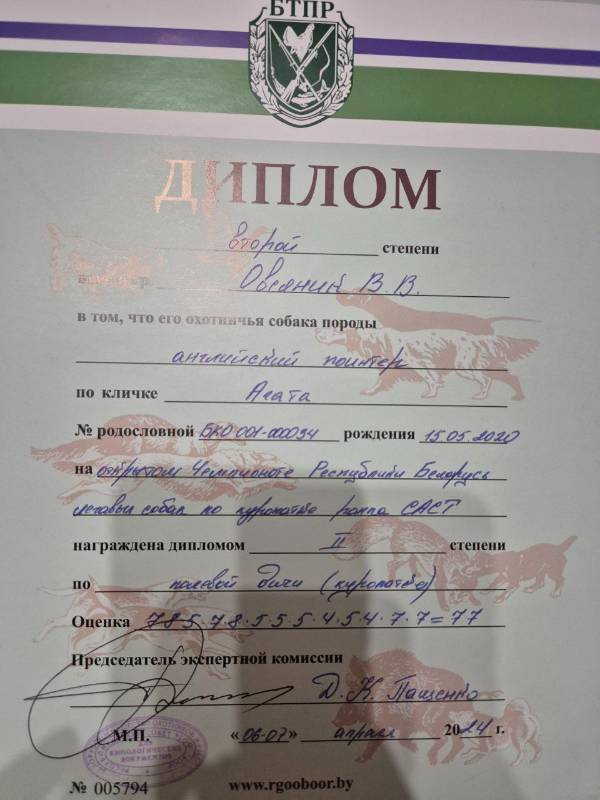 БТПР
ДИПЛОМ
второй степени
Овсяник В. В.
в том, что его охотничья собака породы
английский пойнтер
по кличке Агата
№ родословной БКО 001-000034 рождения 15.05.2020
на открытом Чемпионате Республики Беларусь
легавых собак по куропатке ранга САСТ
награждена дипломом II степени
по полевой дичи (куропатке)
Оценка 7 8 5 · 7 · 8 · 5 5 5 · 4 · 5 4 · 7 · 7 = 77
Председатель экспертной комиссии
Д. К. Пащенко
М.П. «06-07» апреля 2024 г.
ДЛЯ
КИНОЛОГИЧЕСКИХ
ДОКУМЕНТОВ
№ 005794 www.rgooboor.by